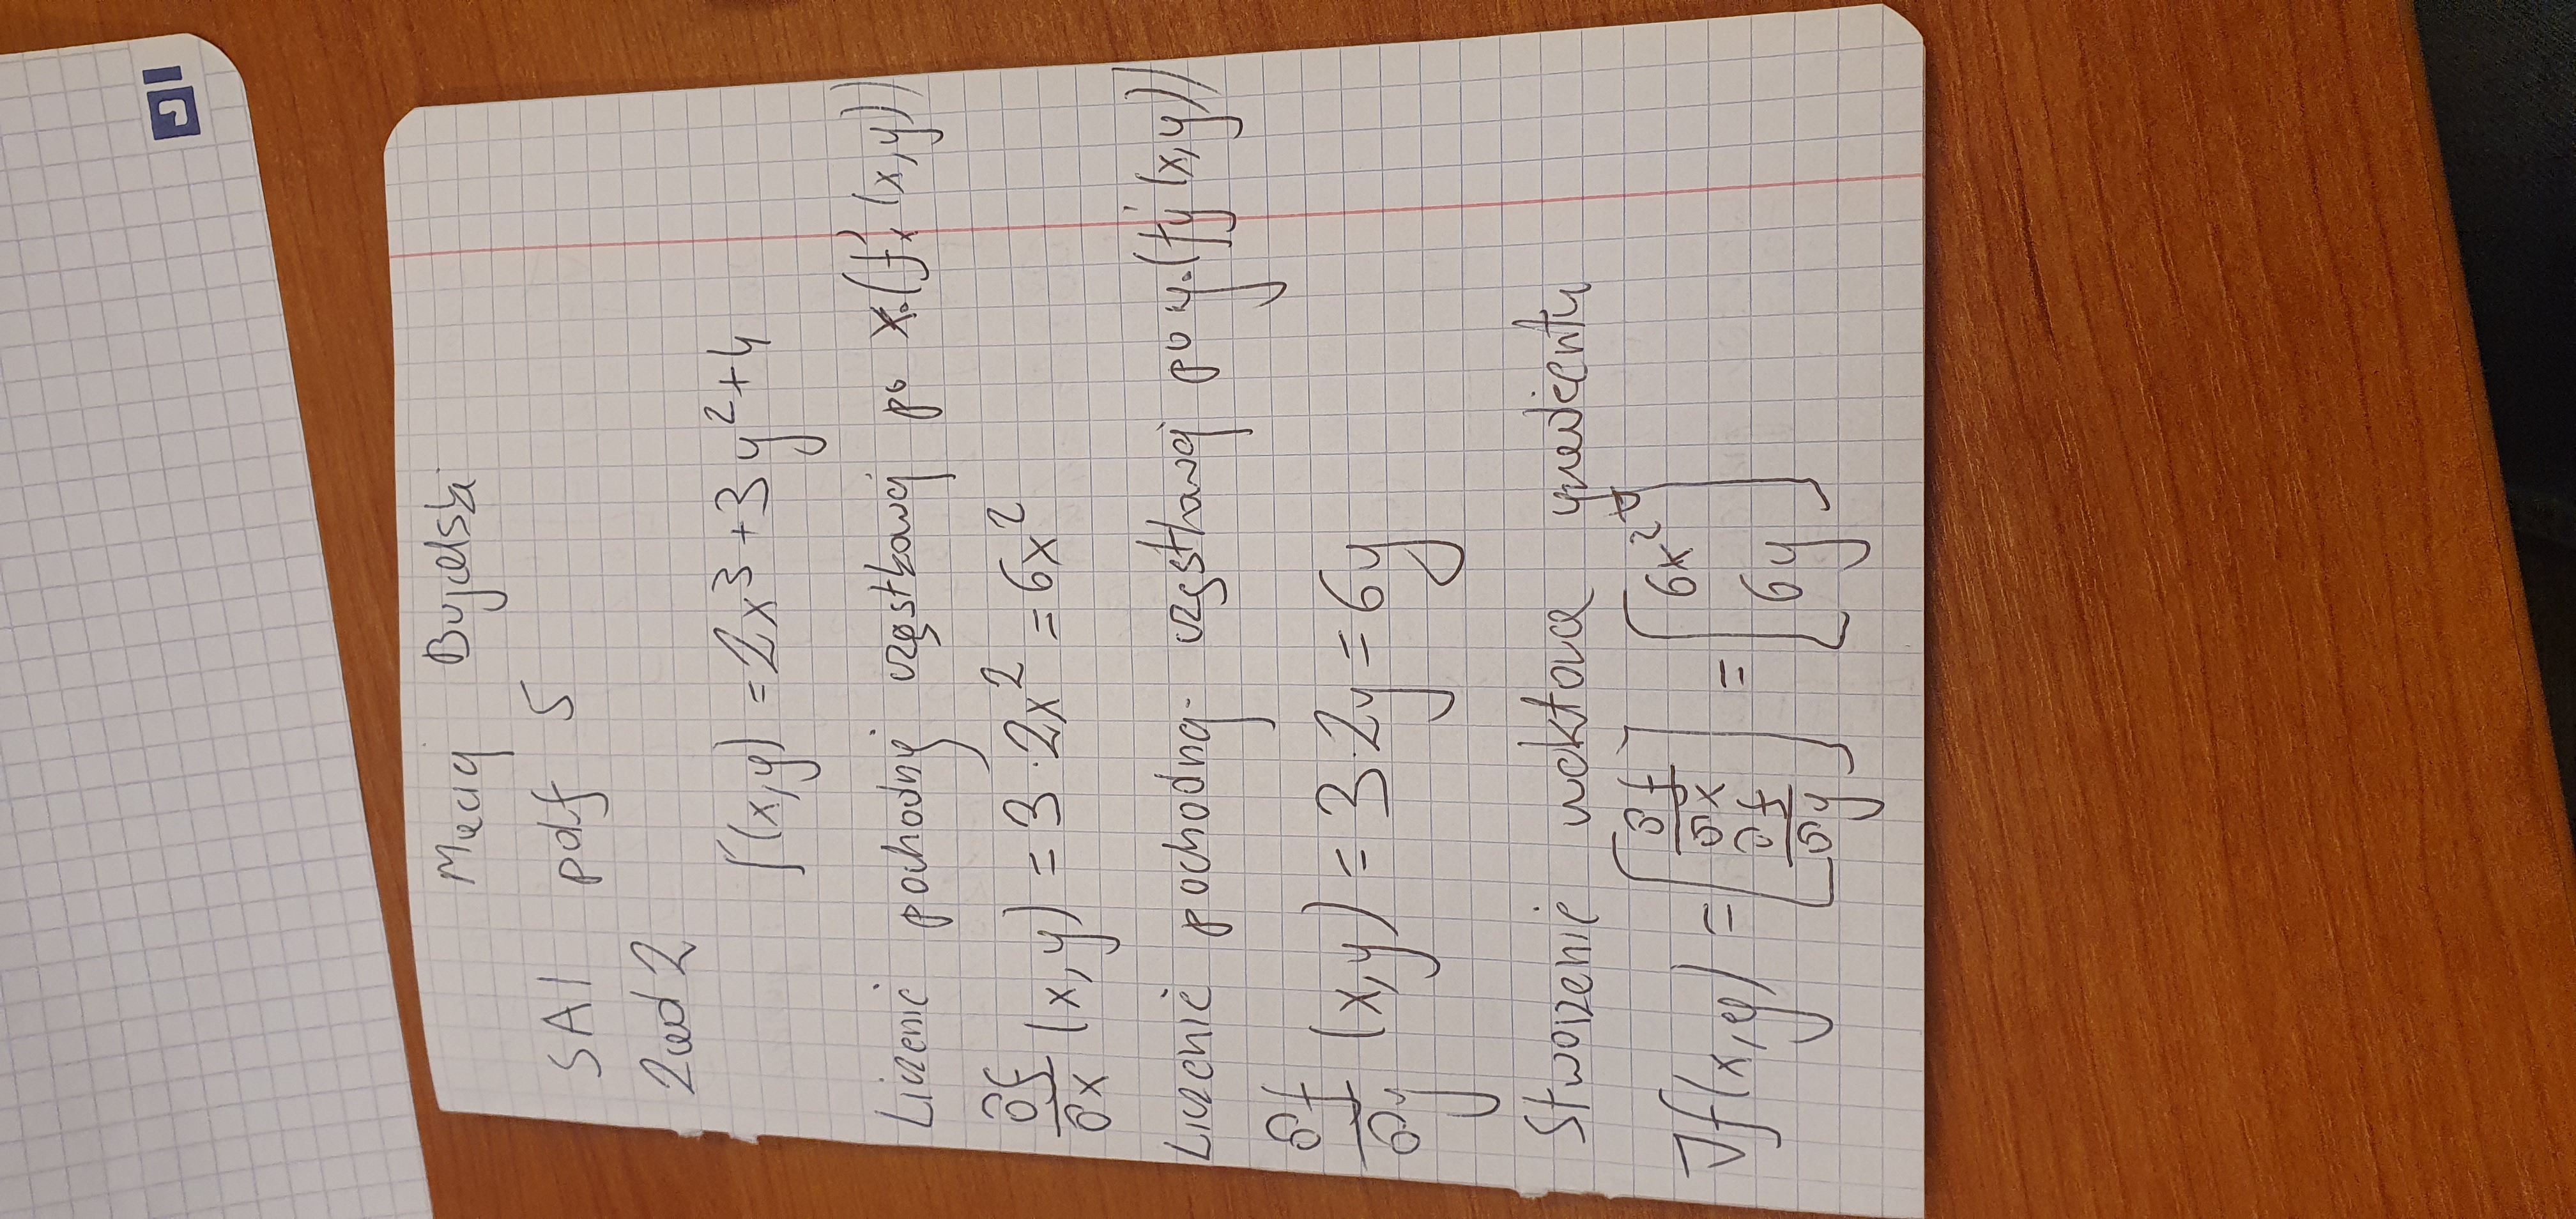 SAI pdf 5
Zad 2
f(x,y) = 2x³+3y²+4
Liczenie pochodnej cząstkowej po x.(f'x (x,y))
∂f/∂x (x,y) = 3·2x² = 6x²
Liczenie pochodnej cząstkowej po y.(fy' (x,y))
∂f/∂y (x,y) = 3·2y = 6y
Stworzenie wektora gradientu
∇f(x,y) = [∂f/∂x ∂f/∂y] = [6x² 6y]